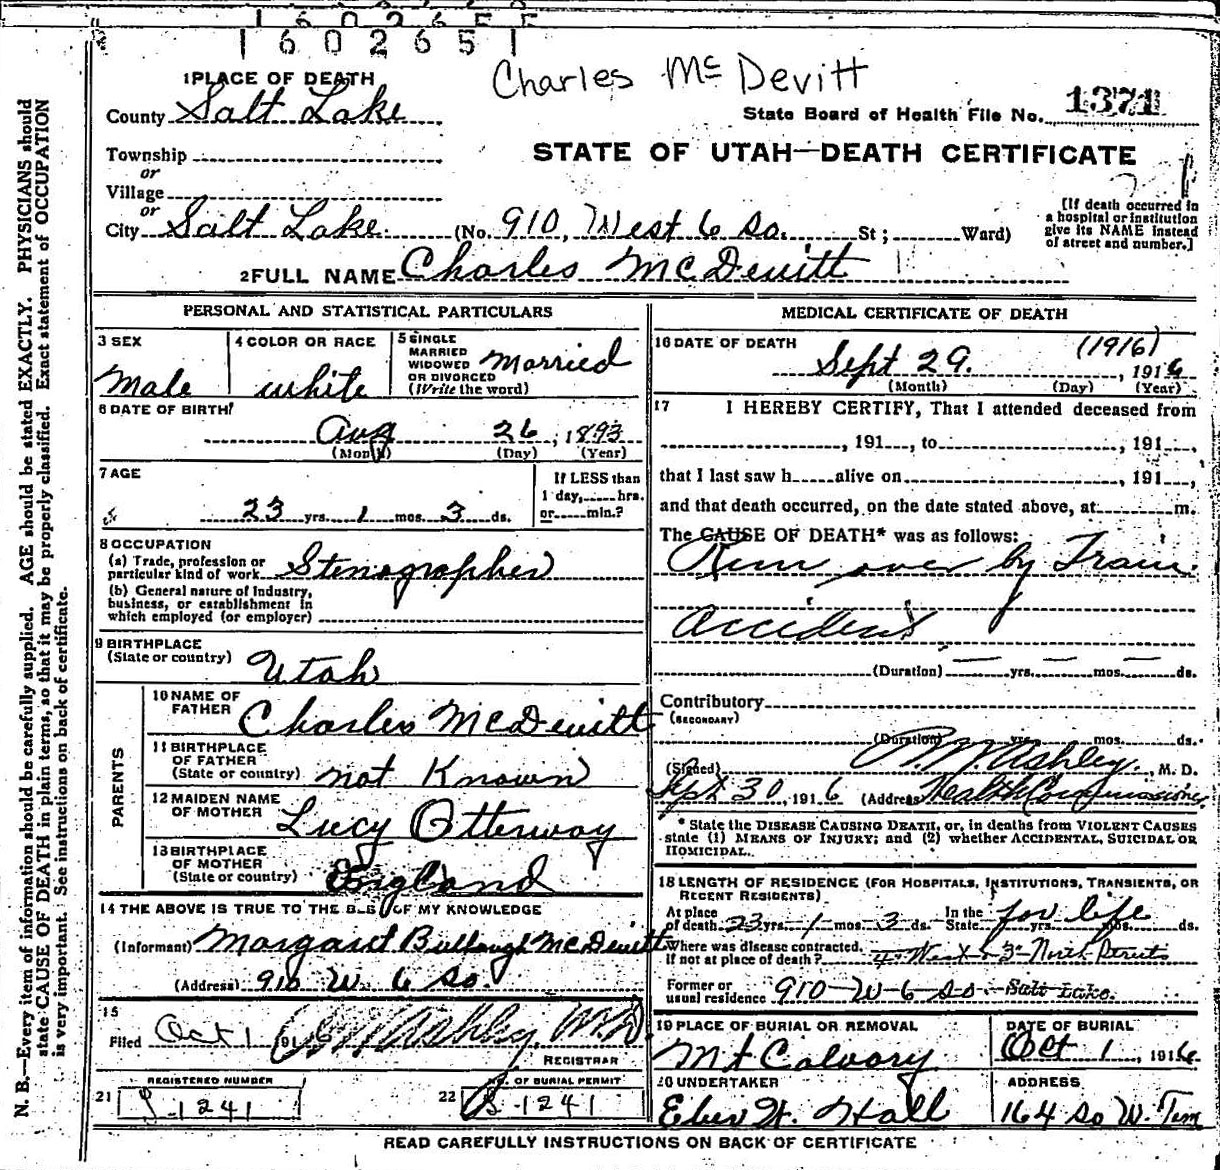 1602651
Charles Mc Devitt
1 PLACE OF DEATH
County Salt Lake
State Board of Health File No. 1371
Township
or
STATE OF UTAH—DEATH CERTIFICATE
Village
or
City Salt Lake (No. 910, West 6 So. St; Ward)
[If death occurred in a hospital or institution give its NAME instead of street and number.]
2 FULL NAME Charles McDevitt
PERSONAL AND STATISTICAL PARTICULARS
3 SEX
Male
4 COLOR OR RACE
white
5 SINGLE
MARRIED
WIDOWED
OR DIVORCED
(Write the word)
Married
6 DATE OF BIRTH
Aug 26, 1893
(Month) (Day) (Year)
7 AGE
23 yrs. 1 mos. 3 ds.
If LESS than
1 day, hrs.
or min.?
8 OCCUPATION
(a) Trade, profession or
particular kind of work Stenographer
(b) General nature of industry,
business, or establishment in
which employed (or employer)
9 BIRTHPLACE
(State or country) Utah
PARENTS
10 NAME OF
FATHER Charles McDevitt
11 BIRTHPLACE
OF FATHER
(State or country) not Known
12 MAIDEN NAME
OF MOTHER Lucy Otterway
13 BIRTHPLACE
OF MOTHER
(State or country) England
14 THE ABOVE IS TRUE TO THE BEST OF MY KNOWLEDGE
(Informant) Margaret Bullough McDevitt
(Address) 910 W. 6 So.
15
Filed Oct 1 191 6 Ashley, M.D.
REGISTRAR
21 REGISTERED NUMBER
1241
22 NO. OF BURIAL PERMIT
1241
MEDICAL CERTIFICATE OF DEATH
16 DATE OF DEATH
(1916)
Sept 29, 1916
(Month) (Day) (Year)
17 I HEREBY CERTIFY, That I attended deceased from
, 191 , to , 191 ,
that I last saw h alive on , 191 ,
and that death occurred, on the date stated above, at m.
The CAUSE OF DEATH* was as follows:
Run over by Train.
Accident
(Duration) — yrs. — mos. — ds.
Contributory
(SECONDARY)
(Duration) yrs. mos. ds.
(Signed) Ashley, M. D.
Sept 30, 1916 (Address) Health Commissioner
* State the DISEASE CAUSING DEATH, or, in deaths from VIOLENT CAUSES
state (1) MEANS OF INJURY; and (2) whether ACCIDENTAL, SUICIDAL OR
HOMICIDAL.
18 LENGTH OF RESIDENCE (FOR HOSPITALS, INSTITUTIONS, TRANSIENTS, OR
RECENT RESIDENTS)
At place
of death 23 yrs. 1 mos. 3 ds. In the
State for life yrs. mos. ds.
Where was disease contracted,
if not at place of death? 4" West & 3" North Streets
Former or
usual residence 910 W 6 So. Salt Lake.
19 PLACE OF BURIAL OR REMOVAL
Mt Calvary
DATE OF BURIAL
Oct 1, 1916
20 UNDERTAKER
Eber W. Hall
ADDRESS
164 So W. Tem
READ CAREFULLY INSTRUCTIONS ON BACK OF CERTIFICATE
N. B.—Every item of information should be carefully supplied. AGE should be stated EXACTLY. PHYSICIANS should
state CAUSE OF DEATH in plain terms, so that it may be properly classified. Exact statement of OCCUPATION
is very important. See instructions on back of certificate.